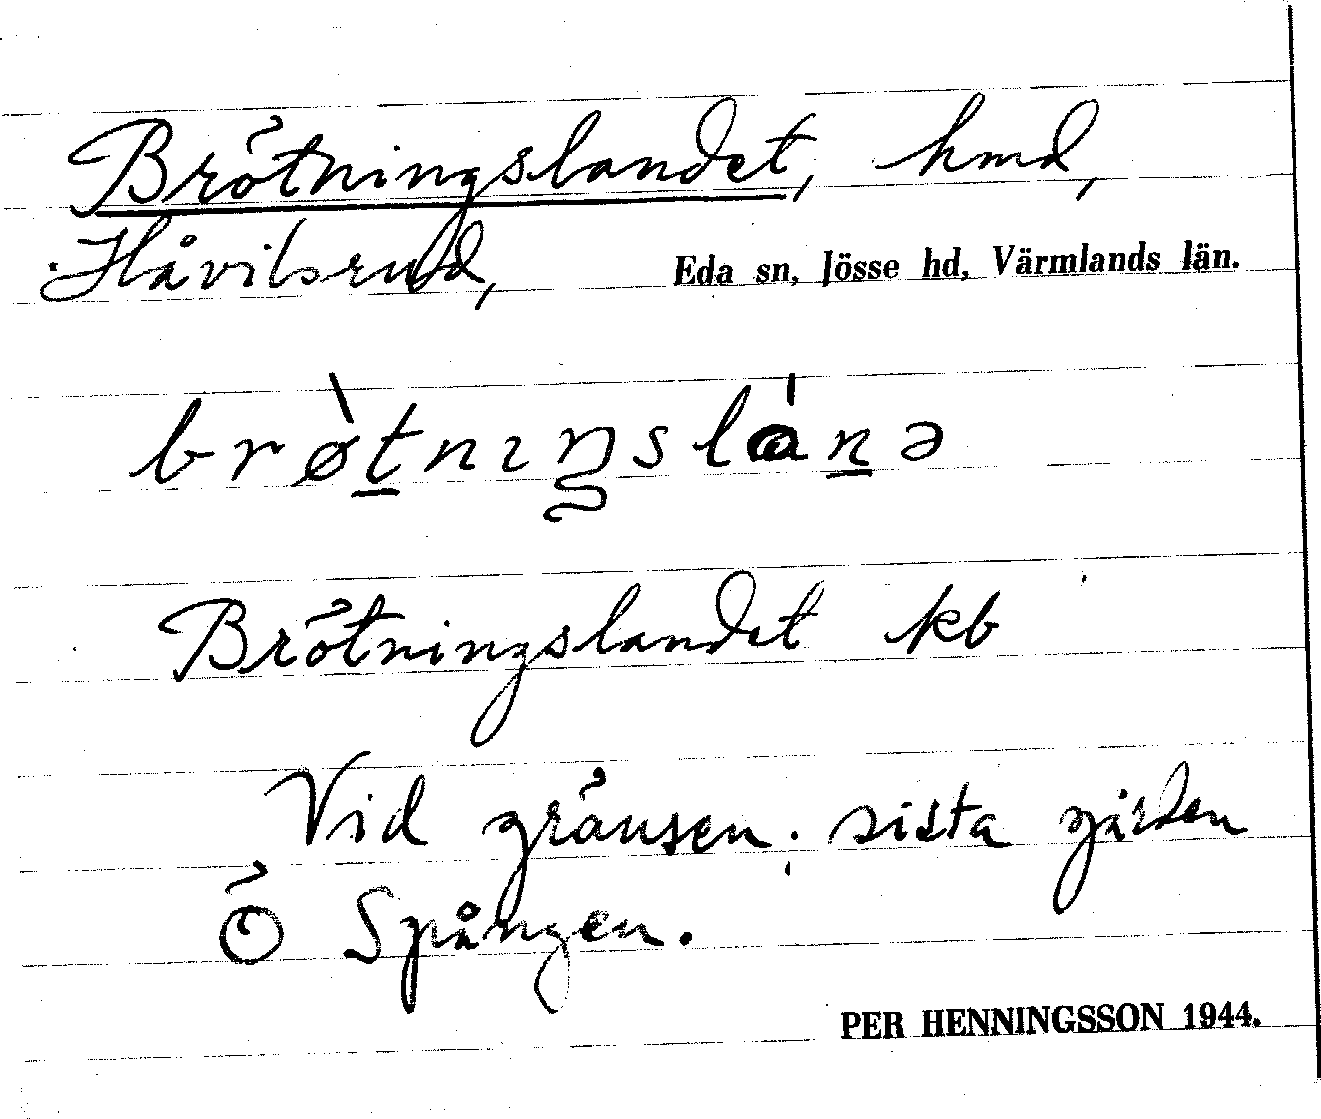 Brötningslandet, hmd,
Håvilsrud, Eda sn, Jösse hd, Värmlands län.
brø̀t̲nıŋslán̲ə
Brötningslandet kb
Vid gränsen; sista gården
Ö Spången.
PER HENNINGSSON 1944.